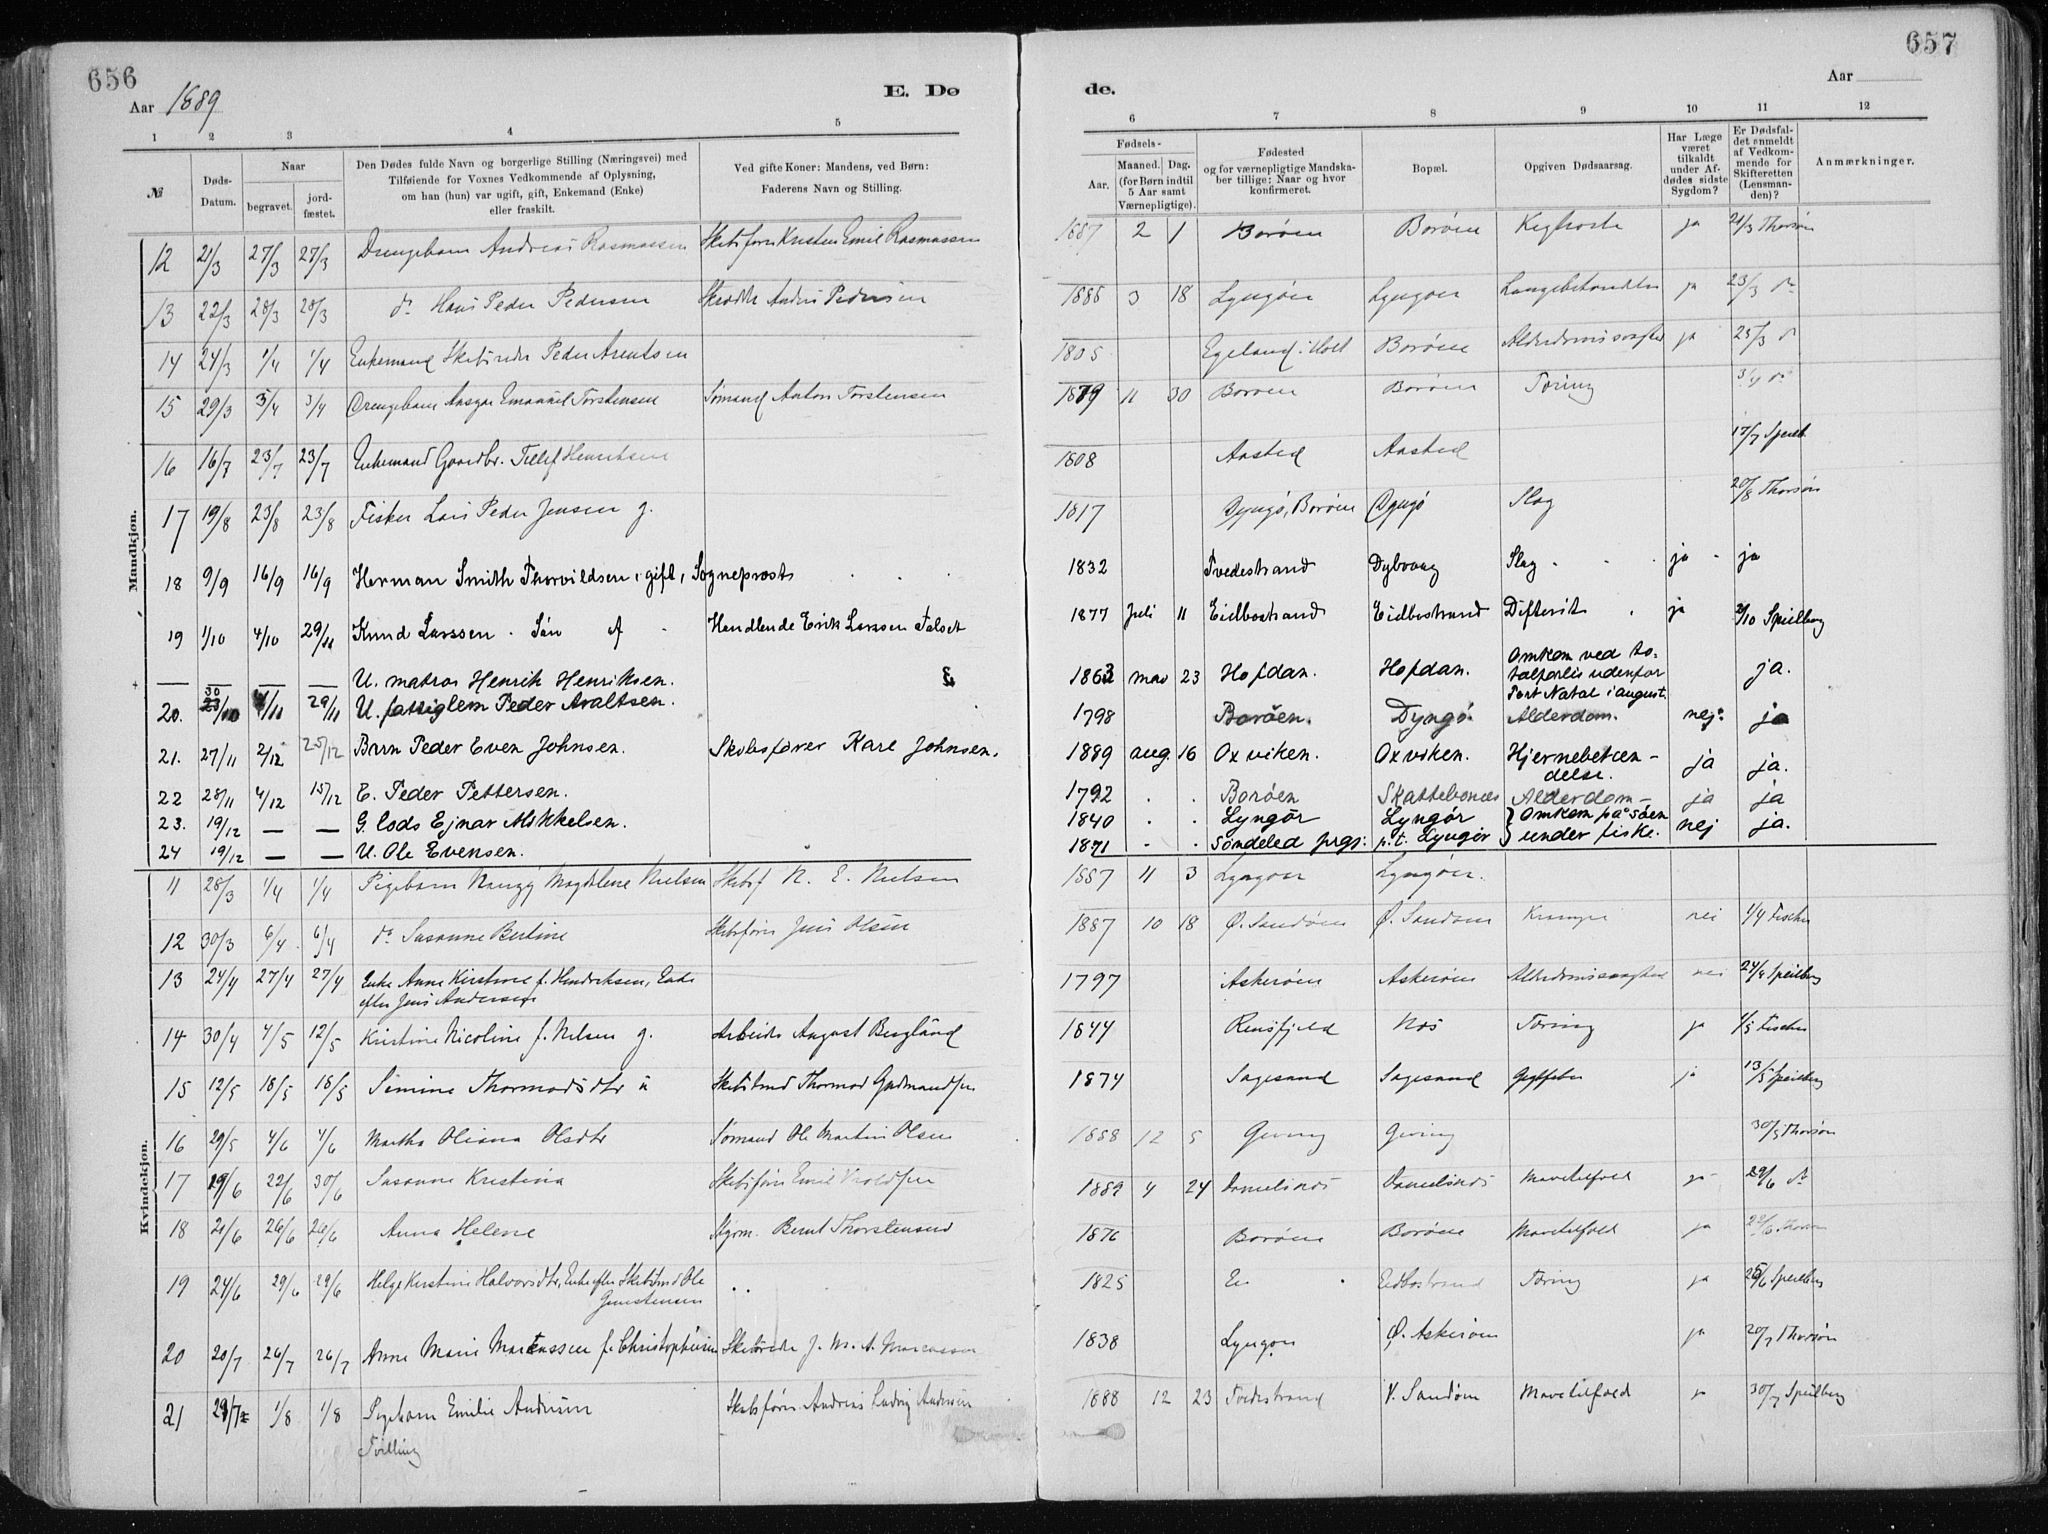 656
657
Aar 1889
E. Dø
de.
Aar
1 2 3 4 5 6 7 8 9 10 11 12
№
Døds-Datum.
Naar
begravet.
jord-fæstet.
Den Dødes fulde Navn og borgerlige Stilling (Næringsvei) med
Tilføiende for Voxnes Vedkommende af Oplysning,
om han (hun) var ugift, gift, Enkemand (Enke)
eller fraskilt.
Ved gifte Koner: Mandens, ved Børn:
Faderens Navn og Stilling.
Fødsels-
Aar.
Maaned. Dag.
(for Børn indtil
5 Aar samt
Værnepligtige).
Fødested
og for værnepligtige Mandska-
ber tillige: Naar og hvor
konfirmeret.
Bopæl.
Opgiven Dødsaarsag.
Har Læge
været
tilkaldt
under Af-
dødes sidste
Sygdom?
Er Dødsfal-
det anmeldt
af Vedkom-
mende for
Skifteretten
(Lensman-
den)?
Anmærkninger.
Mandkjøn.
12 21/3 27/3 27/3 Drengebarn Andreas Rasmussen Skibsfører Kristen Emil Rasmussen 1887 2 1 Borøen Borøen Kighoste ja 21/3 Thorsøn
13 22/3 28/3 28/3 do Hans Peder Pedersen Anders Pedersen 1886 3 18 Lyngøer Lyngøer ja 23/3 do
14 24/3 1/4 1/4 Enkemand Skibsreder Peder Arentsen 1805 Egeland i Holt Borøen ja 25/3 do
15 29/3 3/4 3/4 Drengebarn Aasgar Emanuel Torstensen Sømand Anton Torstensen 1879 11 30 Borøen Borøen Tæring 3/4 do
16 16/7 23/7 23/7 Enkemand Gaardbr. Tellef Henriksen 1808 Aasted Aasted 17/7 Speilb.
17 19/8 23/8 23/8 Fisker Lars Peder Jensen g. 1817 Dyngø, Borøen Dyngø Slag 20/8 Thorsøn
18 9/9 16/9 16/9 Herman Smith Thorvildsen, gift, Sogneprost 1832 Tvedestrand Dybvaag Slag ja ja
19 1/10 4/10 29/11 Knud Larssen. Søn af Handlende Erik Larssen Falset 1877 Juli 11 Eidbostrand Eidbostrand Difterit ja 2/10 Speilberg
— — — — U. matros Henrik Henriksen. 1863 mav 23 Hofdan. Hofdan. Omkom ved to-
talforlis udenfor
Port Natal i august. ja.
20. 30/10 4/11 29/11 U. fattiglem Peder Avaltsen. 1798 Borøen. Dyngø. Alderdom. nej. ja
21. 27/11 2/12 25/12 Barn Peder Even Johnsen. Skibsfører Karl Johnsen. 1889 aug. 16 Oxviken. Oxviken. Hjernebetæn-
delse. ja ja.
22 28/11 4/12 15/12 E. Peder Pettersen. 1792 . . Borøen Skattebonæs Alderdom — ja ja
23. 19/12 — — G. lods Ejnar Mikkelsen. 1840 . . Lyngør Lyngør } Omkom på søen
24 19/12 — — U. Ole Evensen. 1871 . . Søndeled prgj: p.t. Lyngør } under fiske. nej ja.
Kvindekjøn.
11 28/3 1/4 1/4 Pigebarn Nanzy Magdalene Nielsen Skibsf N. E. Nielsen 1887 11 3 Lyngøer Lyngøer.
12 30/3 6/4 6/4 do Susanne Bertine Skibsfører Jens Olsen 1887 10 18 Ø. Sandøen Ø. Sandøen Krampe nei 1/4 Fischer
13 24/4 27/4 27/4 Enke Anne Kirstine f. Hendriksen, Enke
efter Jens Andersen 1797 Askerøen Askerøen nei 24/4 Speilberg
14 30/4 4/5 12/5 Kristine Nicoline f. Nilsen g. Arbeider August Berglund 1844 Rensfjeld Næs Tæring ja 1/5 Fischer
15 12/5 18/5 18/5 Simine Thormodsdtr u Thormod Gudmundsen 1874 Sagesund Sagesund ja 13/5 Speilberg
16 29/5 4/6 4/6 Martha Oliana Olsdtr Sømand Ole Martin Olsen 1888 12 5 Gjeving Gjeving 30/5 Thorsøn
17 19/6 22/6 30/6 Susanne Kristina Skibsfører Emil 1889 4 24 Mavetilfæld ja 29/6 do
18 21/6 26/6 26/6 Anna Helene Styrm. Bernt Thorstensen 1876 Borøen Borøen Mavetilfæld ja 22/6 Thorsøn
19 24/6 29/6 29/6 Helge Kirstine Halvorsdtr, Enke efter Skibstmd Ole
Gunstensen 1825 Ei Eidbostrand Tæring ja 25/6 Speilberg
20 20/7 26/7 26/7 Anne Marie Marcussen f. Christophersen Skibsreder J. M. A. Marcussen 1838 Lyngøer Ø. Askerøen ja 20/7 Thorsøn
21 29/7 1/8 1/8 Pigebarn Emilie Andersen
Tvilling Skibsfører Andreas Ludvig Andersen 1888 12 23 Tvedestrand V. Sandøen Mavetilfæld ja 30/7 Speilberg